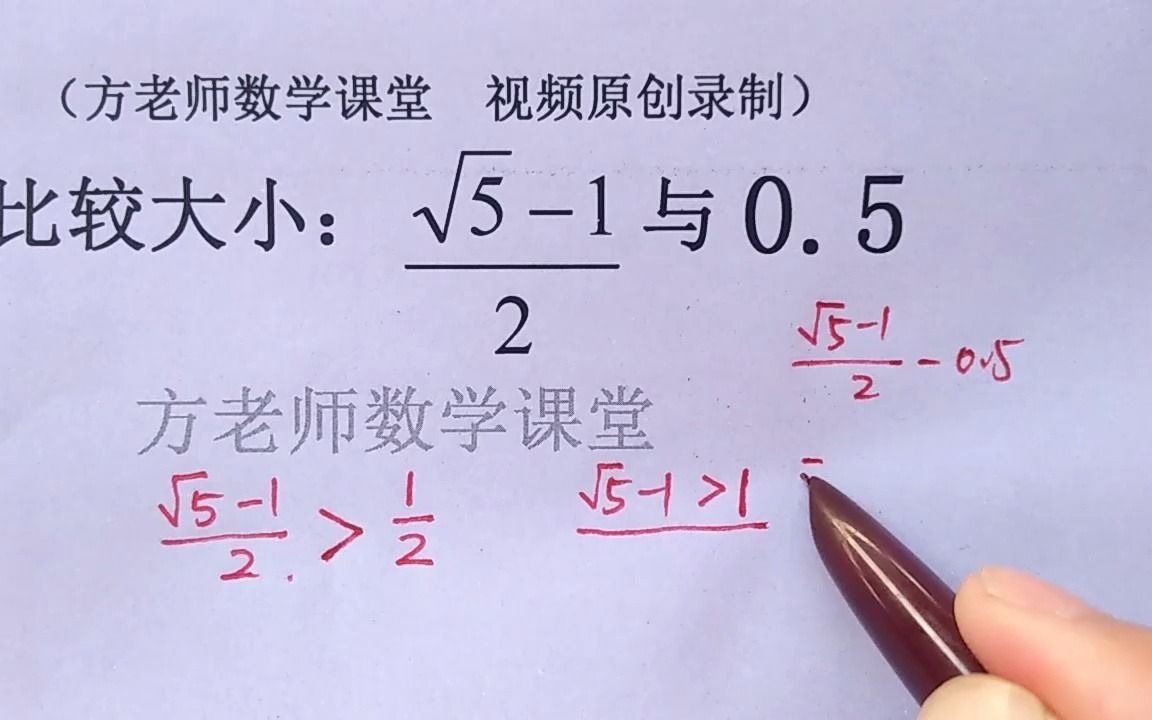 （方老师数学课堂 视频原创录制）
比较大小： (√5−1)/2 与 0.5
(√5−1)/2 − 0.5
方老师数学课堂
(√5−1)/2 > 1/2 √5−1>1